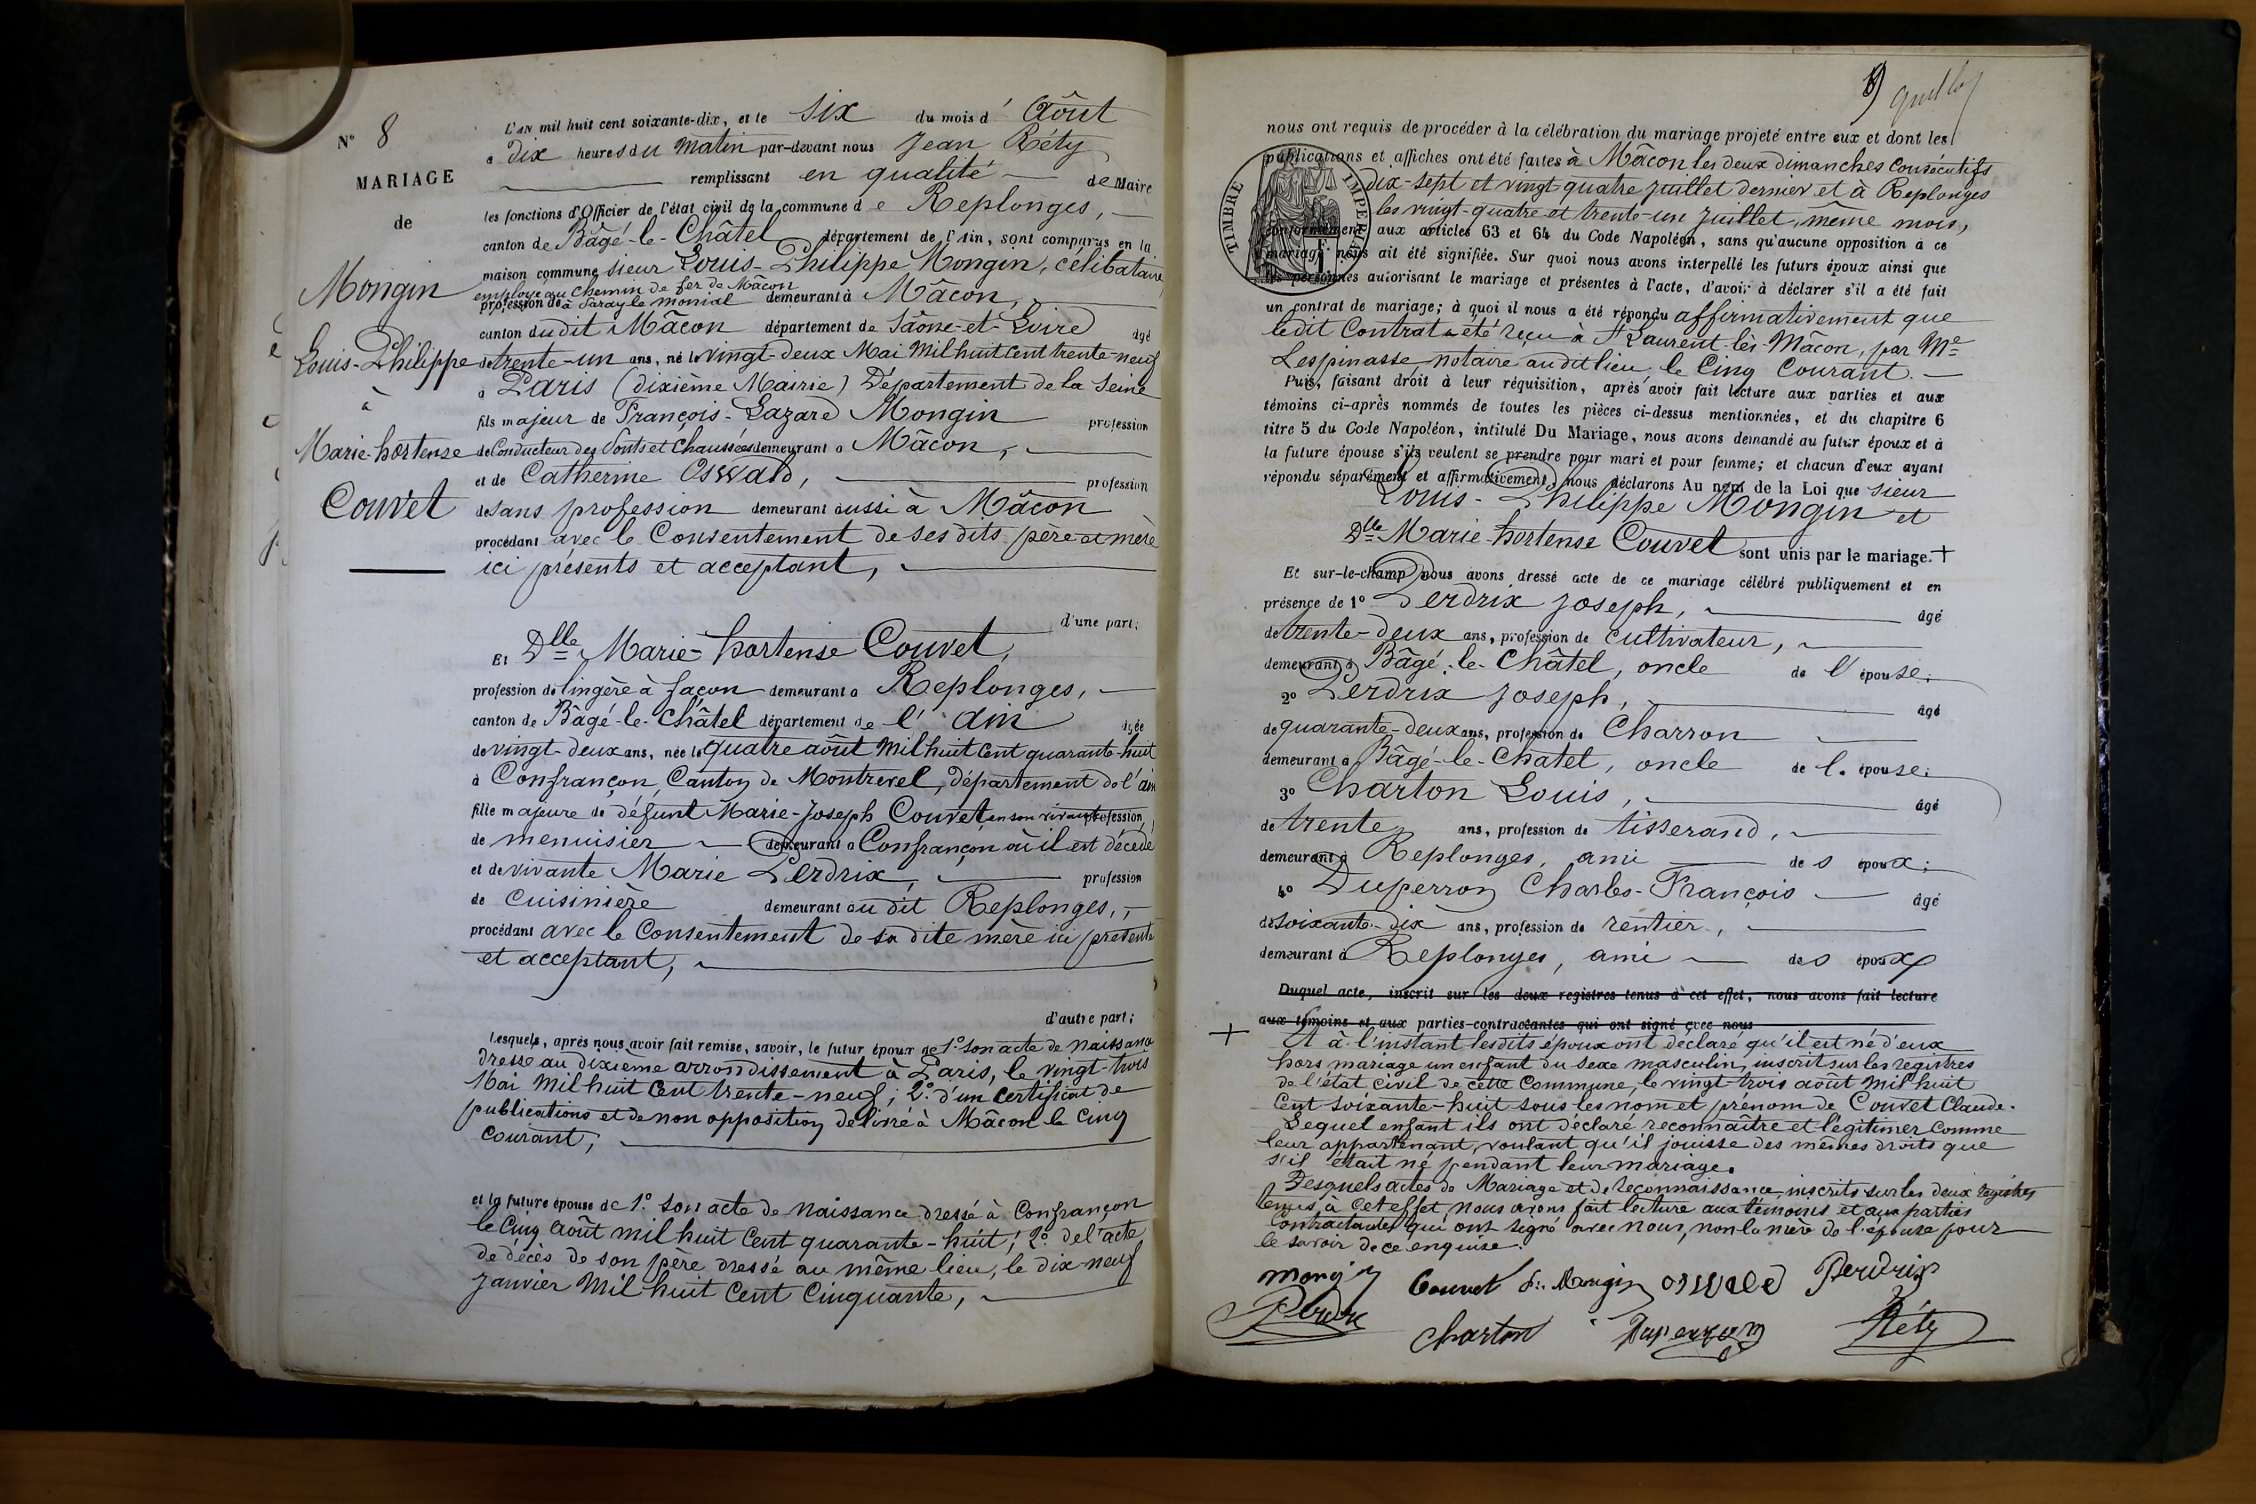 N° 8
MARIAGE
de
Mongin
Louis-Philippe
à
Marie-hortense
Couvet
L'AN mil huit cent soixante-dix, et le six du mois d' Août
à dix heures du matin par-devant nous Jean Réty
remplissant en qualité de Maire
les fonctions d'Officier de l'état civil de la commune de Replonges,
canton de Bâgé-le-Châtel département de l'Ain, sont comparus en la
maison commune sieur Louis-Philippe Mongin, célibataire,
employé au chemin de fer de Mâcon
profession de à Paray le monial demeurant à Mâcon,
canton dudit Mâcon département de Saône-et-Loire âgé
de trente-un ans, né le vingt-deux Mai mil huit cent trente-neuf
à Paris (dixième Mairie) Département de la Seine
fils majeur de François-Lazare Mongin profession
de Conducteur des Ponts et Chaussées demeurant à Mâcon,
et de Catherine Oswald, profession
de sans profession demeurant aussi à Mâcon
procédant avec le Consentement de ses dits père et mère
ici présents et acceptant,
d'une part;
Et Dlle Marie-hortense Couvet,
profession de lingère à façon demeurant à Replonges,
canton de Bâgé-le-Châtel département de l' ain âgée
de vingt-deux ans, née le quatre août mil huit cent quarante-huit
à Confrançon, Canton de Montrevel, département de l'ain
fille majeure de défunt Marie-Joseph Couvet en son vivant profession
de menuisier demeurant à Confrançon où il est décédé
et de vivante Marie Perdrix, profession
de Cuisinière demeurant au dit Replonges,
procédant avec le Consentement de sa dite mère ici présente
et acceptant,
d'autre part;
Lesquels, après nous avoir fait remise, savoir, le futur époux de 1° son acte de naissance
dressé au dixième arrondissement à Paris, le vingt-trois
Mai mil huit cent trente-neuf; 2° d'un certificat de
publications et de non opposition délivré à Mâcon le cinq
courant;
et la future épouse de 1° son acte de naissance dressé à Confrançon
le cinq août mil huit cent quarante-huit; 2° de l'acte
de décès de son père dressé au même lieu, le dix-neuf
janvier mil huit cent cinquante,
9
nous ont requis de procéder à la célébration du mariage projeté entre eux et dont les
publications et affiches ont été faites à Mâcon les deux dimanches consécutifs
dix-sept et vingt-quatre juillet dernier et à Replonges
les vingt-quatre et trente-un juillet, même mois,
TIMBRE IMPERIAL
conformément aux articles 63 et 64 du Code Napoléon, sans qu'aucune opposition à ce
mariage nous ait été signifiée. Sur quoi nous avons interpellé les futurs époux ainsi que
les personnes autorisant le mariage et présentes à l'acte, d'avoir à déclarer s'il a été fait
un contrat de mariage; à quoi il nous a été répondu affirmativement que
ledit Contrat a été reçu à St Laurent-lès-Mâcon, par Me
Lespinasse, notaire audit lieu le Cinq Courant.
Puis, faisant droit à leur réquisition, après avoir fait lecture aux parties et aux
témoins ci-après nommés de toutes les pièces ci-dessus mentionnées, et du chapitre 6
titre 5 du Code Napoléon, intitulé Du Mariage, nous avons demandé au futur époux et à
la future épouse s'ils veulent se prendre pour mari et pour femme; et chacun d'eux ayant
répondu séparément et affirmativement, nous déclarons Au nom de la Loi que sieur
Louis-Philippe Mongin et
Dlle Marie-hortense Couvet sont unis par le mariage. +
Et sur-le-champ nous avons dressé acte de ce mariage célébré publiquement et en
présence de 1° Perdrix Joseph, âgé
de trente-deux ans, profession de cultivateur,
demeurant à Bâgé-le-Châtel, oncle de l' épouse;
2° Perdrix Joseph, âgé
de quarante-deux ans, profession de Charron
demeurant à Bâgé-le-Chatel, oncle de l' épouse;
3° Charton Louis, âgé
de trente ans, profession de tisserand,
demeurant à Replonges, ami des époux;
4° Duperron Charles-François âgé
de soixante-dix ans, profession de rentier,
demeurant à Replonges, ami des époux
Duquel acte, inscrit sur les deux registres tenus à cet effet, nous avons fait lecture
aux témoins et aux parties contractantes qui ont signé avec nous
+ Et à l'instant lesdits époux ont déclaré qu'il est né d'eux
hors mariage un enfant du sexe masculin, inscrit sur les registres
de l'état civil de cette Commune, le vingt-trois août mil huit
cent soixante-huit sous les nom et prénom de Couvet Claude.
Lequel enfant ils ont déclaré reconnaître et légitimer comme
leur appartenant, voulant qu'il jouisse des mêmes droits que
s'il était né pendant leur mariage.
Desquels actes de Mariage et de reconnaissance, inscrits sur les deux registres
tenus à cet effet nous avons fait lecture aux témoins et aux parties
contractantes qui ont signé avec nous, non la mère de l'épouse pour
le savoir de ce enquise.
Mongin Couvet Fs Mongin Oswald Perdrix
Perdrix Charton Duperron Réty